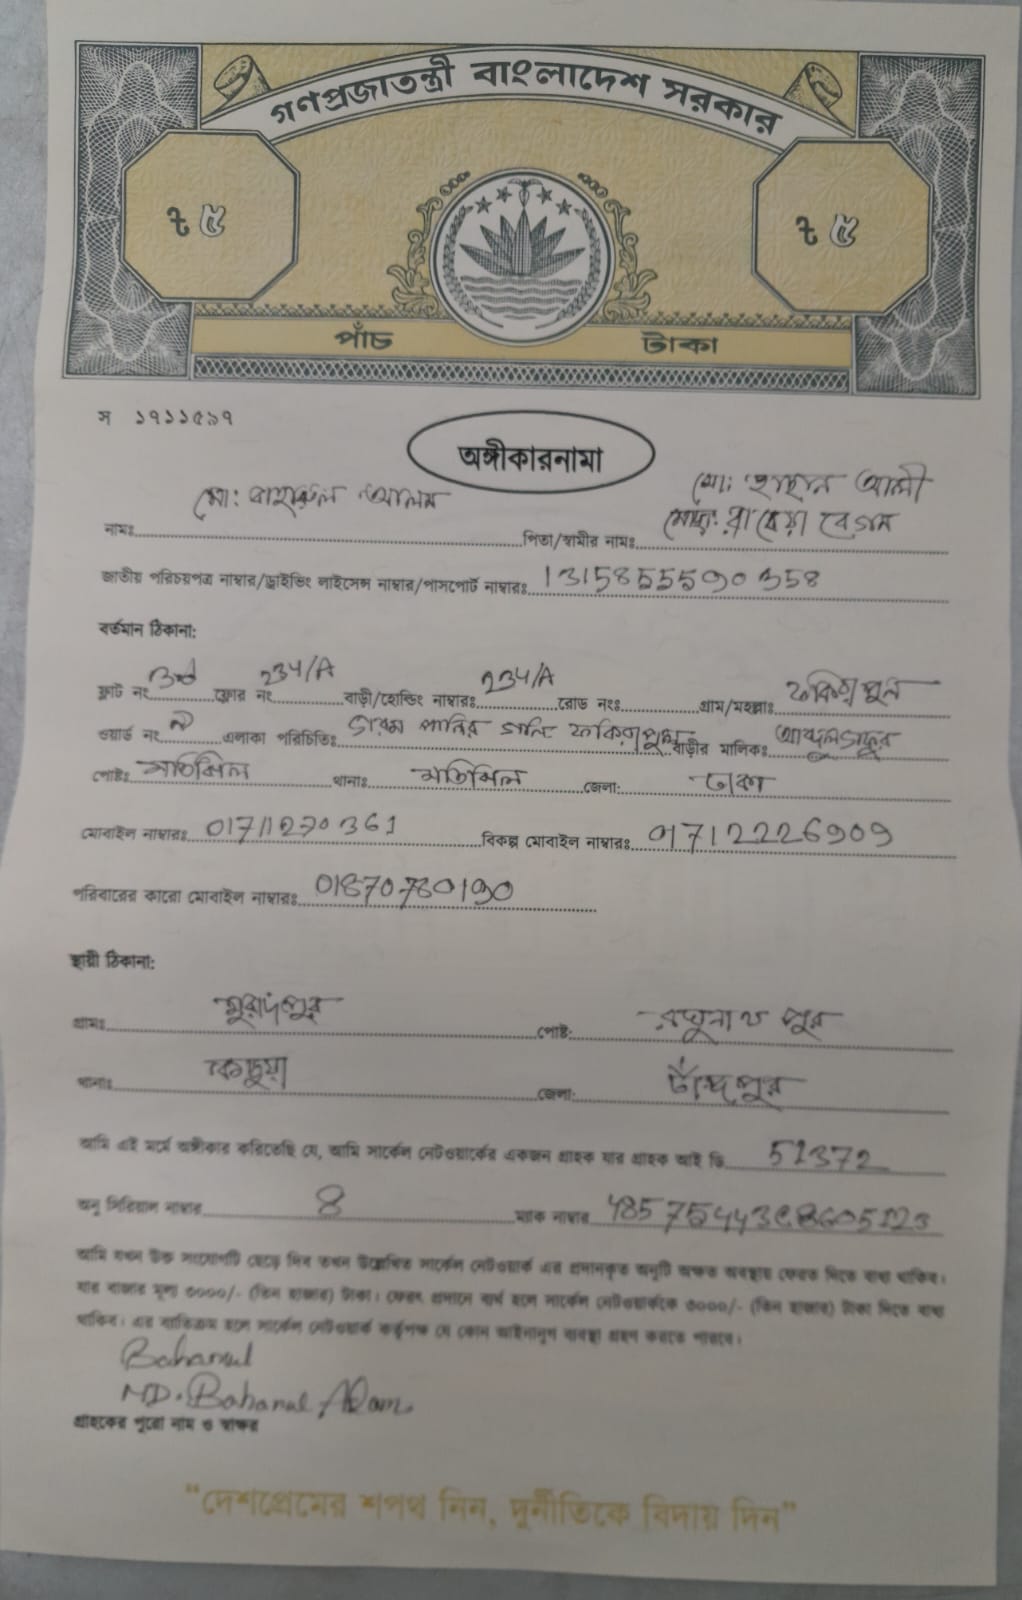 গণপ্রজাতন্ত্রী বাংলাদেশ সরকার
৳ ৫ ৳ ৫
পাঁচ টাকা
স ১৭১১৫৯৭
অঙ্গীকারনামা
নামঃ মো: বাহারুল আলম পিতা/স্বামীর নামঃ মো: হাছান আলী
মোছা: রাবেয়া বেগম
জাতীয় পরিচয়পত্র নাম্বার/ড্রাইভিং লাইসেন্স নাম্বার/পাসপোর্ট নাম্বারঃ 1315855590358
বর্তমান ঠিকানা:
ফ্লাট নং 3rd ফ্লোর নং 234/A বাড়ী/হোল্ডিং নাম্বারঃ 234/A রোড নংঃ গ্রাম/মহল্লাঃ ফকিরাপুল
ওয়ার্ড নং ৯ এলাকা পরিচিতিঃ গরম পানির গলি ফকিরাপুল বাড়ীর মালিকঃ
পোষ্টঃ মতিঝিল থানাঃ মতিঝিল জেলা: ঢাকা
মোবাইল নাম্বারঃ 01711270361 বিকল্প মোবাইল নাম্বারঃ 01712226909
পরিবারের কারো মোবাইল নাম্বারঃ 01870780190
স্থায়ী ঠিকানা:
গ্রামঃ মুরাদপুর পোষ্ট: রঘুনাথ পুর
থানাঃ কচুয়া জেলা: চাঁদপুর
আমি এই মর্মে অঙ্গীকার করিতেছি যে, আমি সার্কেল নেটওয়ার্কের একজন গ্রাহক যার গ্রাহক আই ডি 51372
অনু সিরিয়াল নাম্বার 8 ম্যাক নাম্বার
আমি যখন উক্ত সংযোগটি ছেড়ে দিব তখন উল্লেখিত সার্কেল নেটওয়ার্ক এর প্রদানকৃত অনুটি অক্ষত অবস্থায় ফেরত দিতে বাধ্য থাকিব।
যার বাজার মূল্য ৩০০০/- (তিন হাজার) টাকা। ফেরৎ প্রদানে ব্যর্থ হলে সার্কেল নেটওয়ার্ককে ৩০০০/- (তিন হাজার) টাকা দিতে বাধ্য
থাকিব। এর ব্যতিক্রম হলে সার্কেল নেটওয়ার্ক কর্তৃপক্ষ যে কোন আইনানুগ ব্যবস্থা গ্রহণ করতে পারবে।
Baharul
MD. Baharul Alam
গ্রাহকের পুরো নাম ও স্বাক্ষর
"দেশপ্রেমের শপথ নিন, দুর্নীতিকে বিদায় দিন"